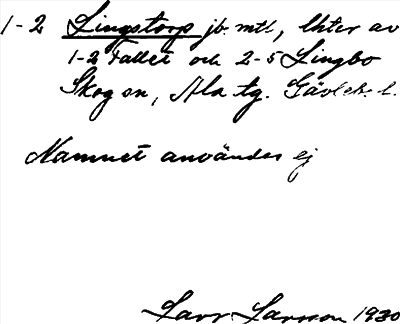 1-2 Lingstorp jb. mtl, lhter av
1-2 Fallet och 2-5 Lingbo
Skog sn, Ala tg. Gävleb. l.
Namnet användes ej
Lars Larsson 1930